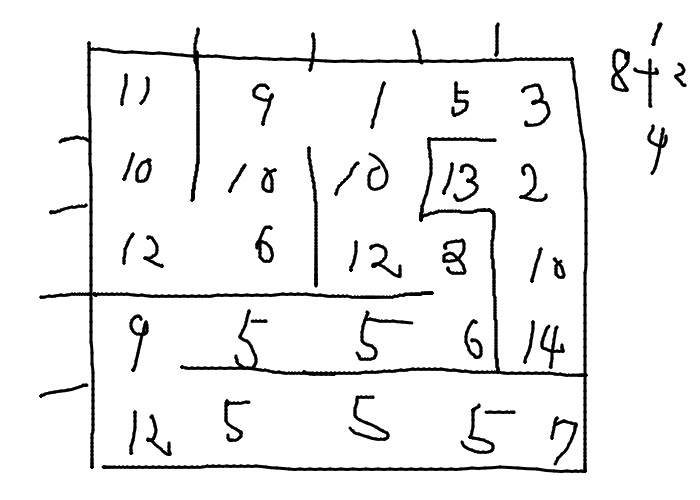 11 9 1 5 3
10 10 10 13 2
12 6 12 8 10
9 5 5 6 14
12 5 5 5 7
1
8 2
4